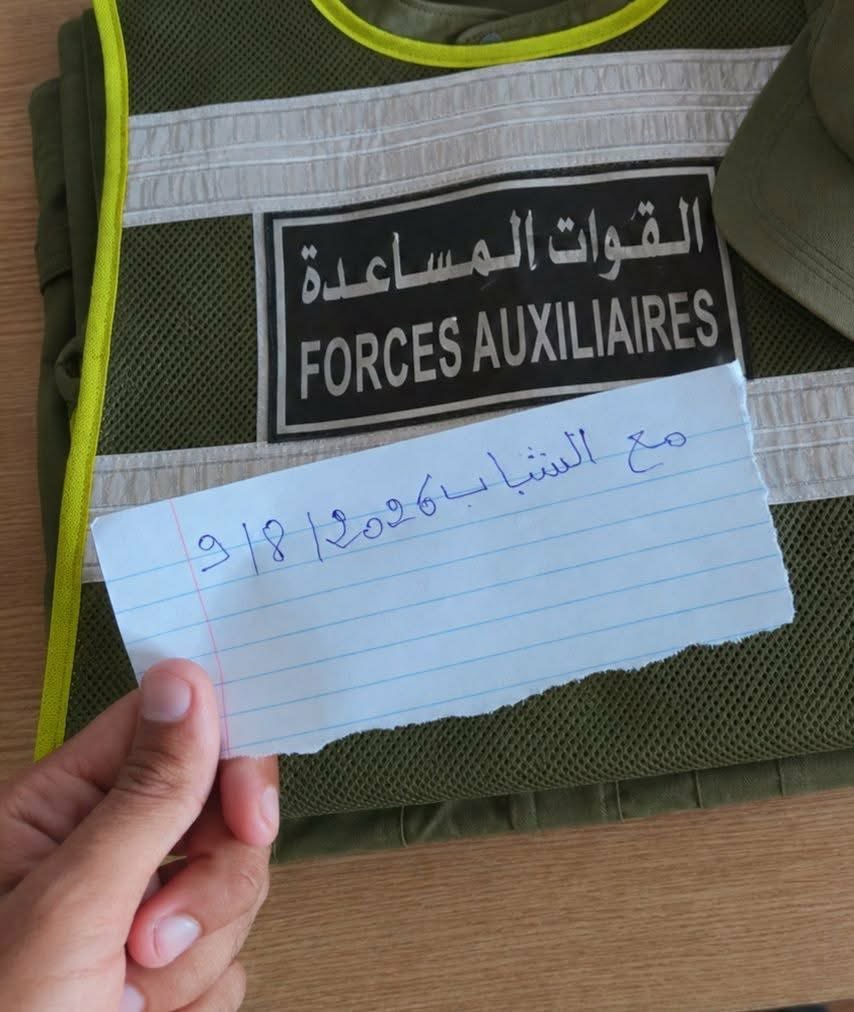 القوات المساعدة
FORCES AUXILIAIRES
مع الشباب 9/8/2026